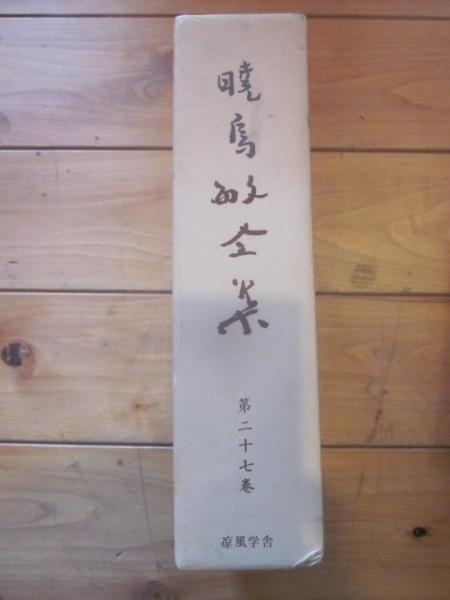 暁烏敏全集
第二十七巻
涼風学舎